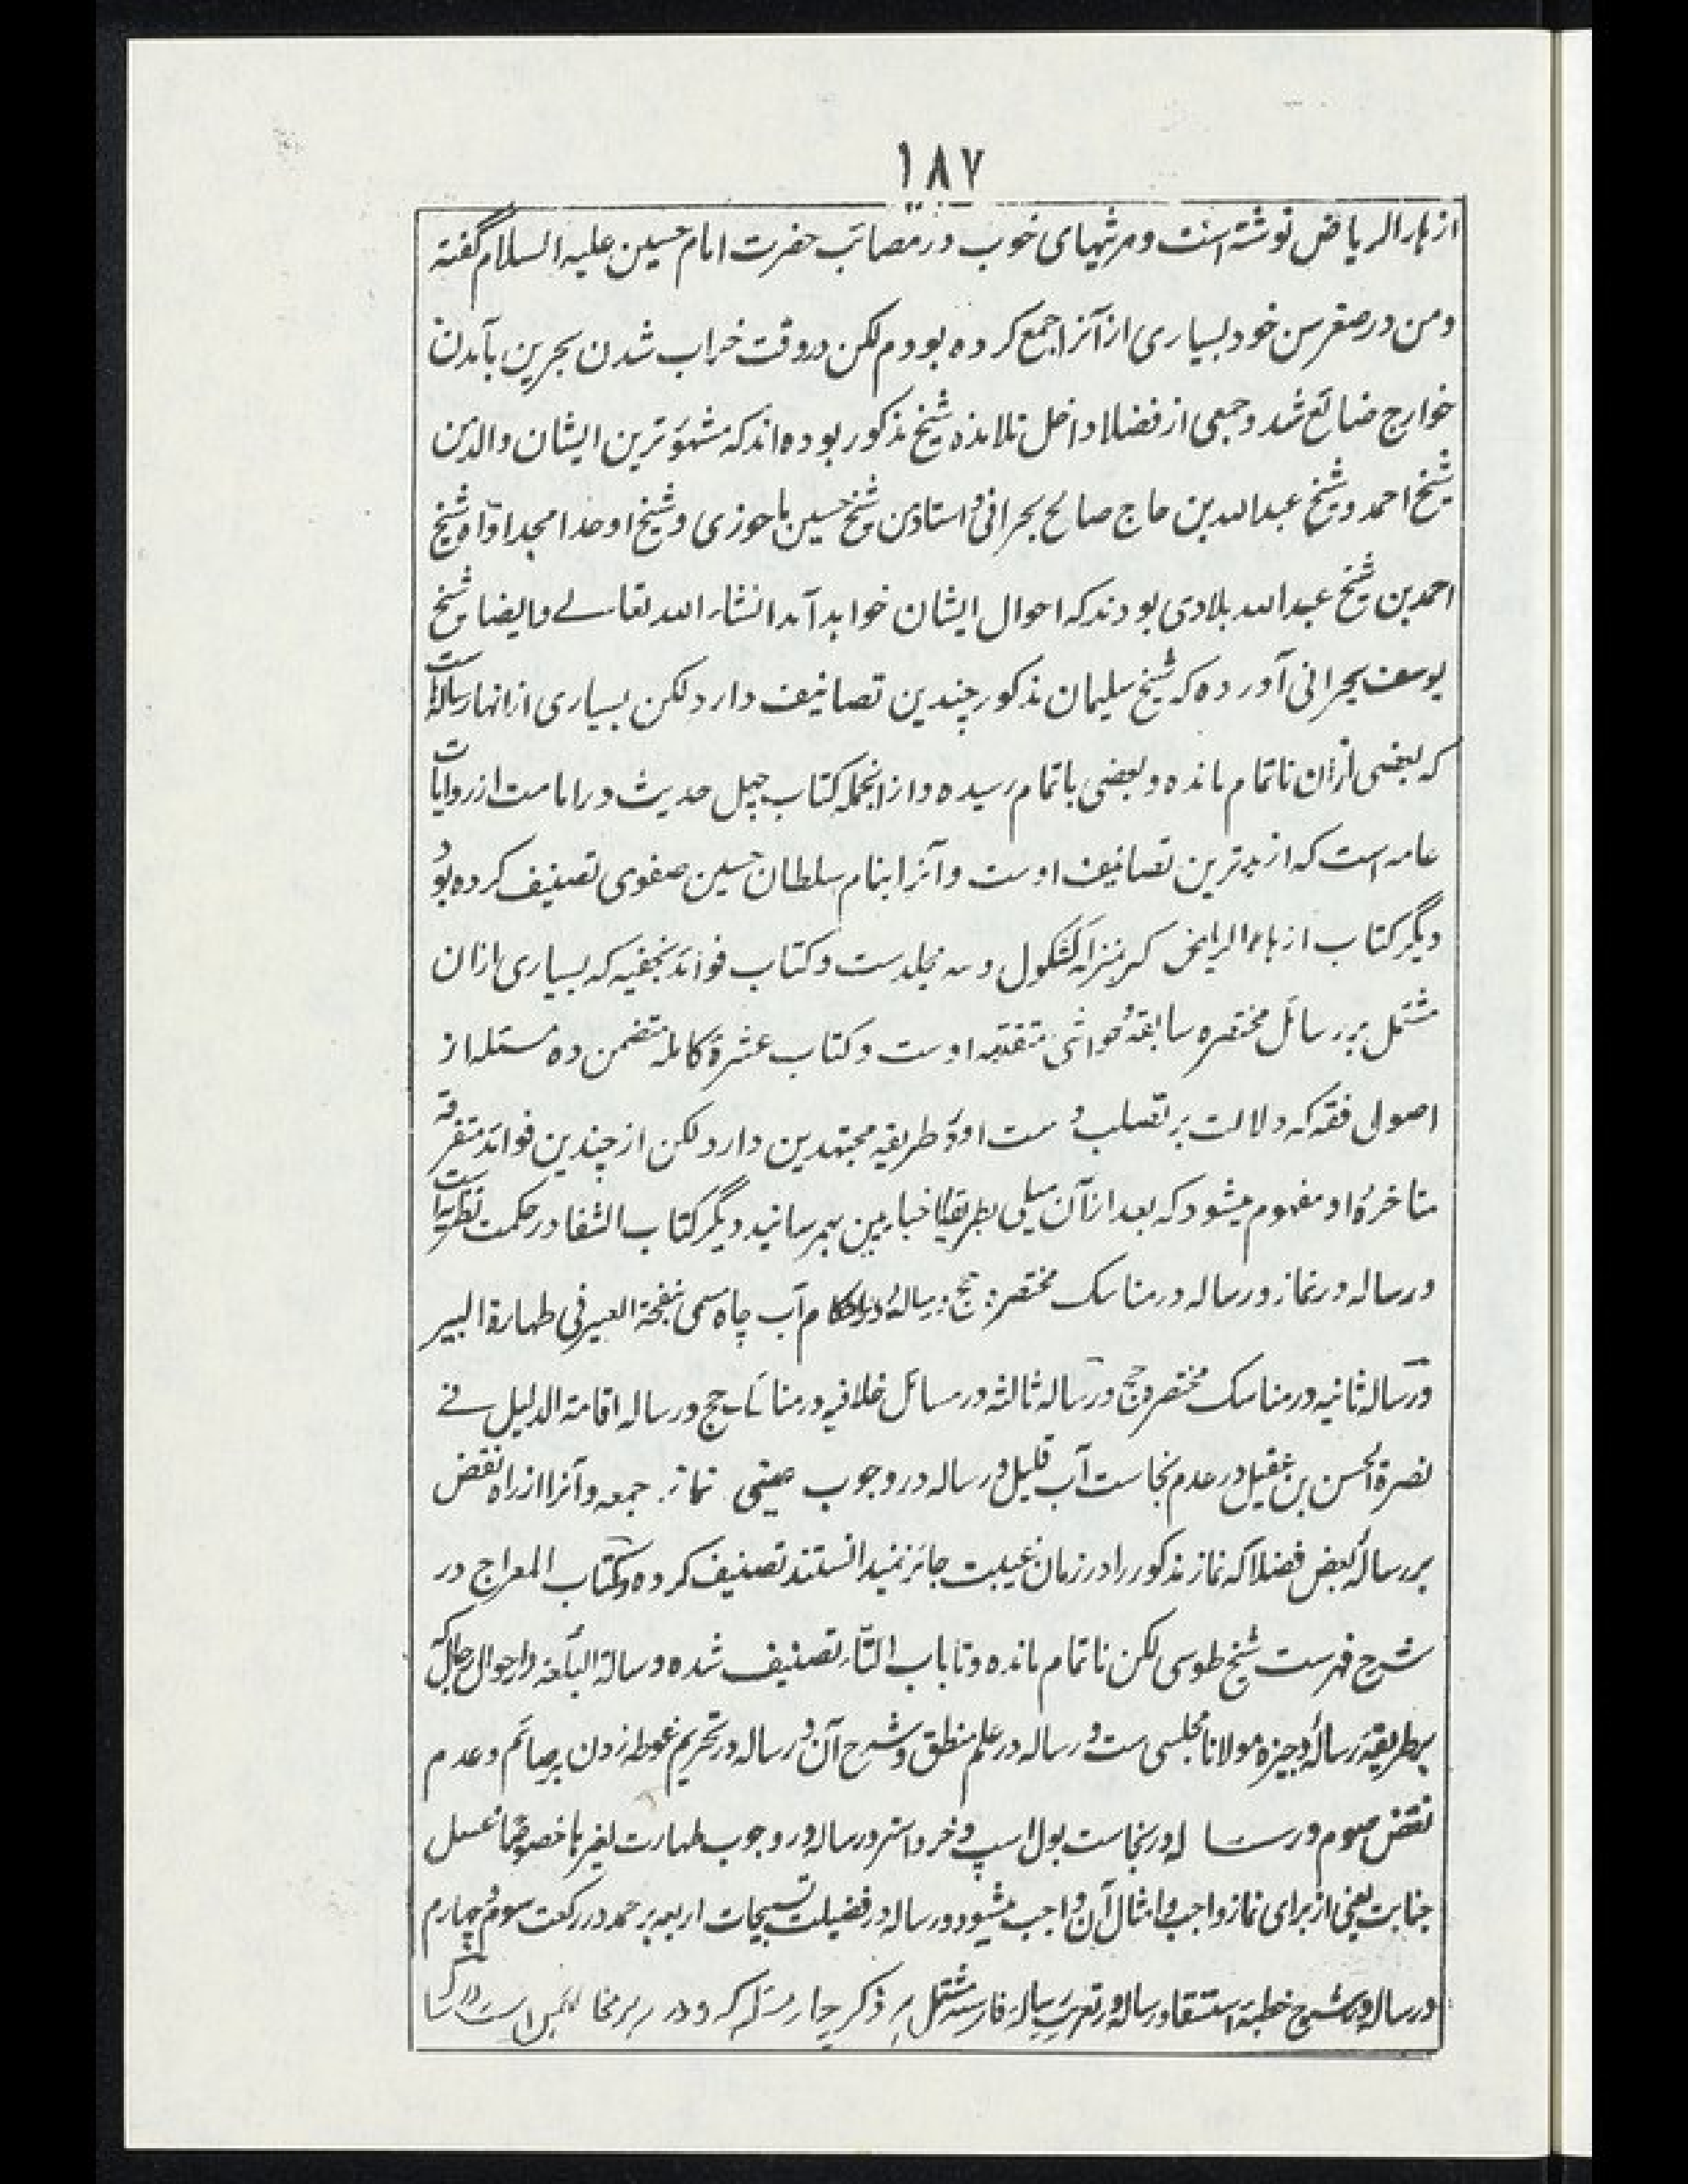 ۱۸۷
ازهار الریاض نوشته است و مرثیهای خوب در مصائب حضرت امام حسین علیه السلام گفته
و من در صغر سن خود بسیاری از آنرا جمع کرده بودم لکن در وقت خراب شدن بحرین بآمدن
خوارج ضائع شد و جمعی از فضلا داخل تلامذه شیخ مذکور بوده اند که مشهورترین ایشان والد من
شیخ احمد و شیخ عبدالله بن حاج صالح بحرانی و استاد من شیخ حسین ماحوزی و شیخ اوحد امجد اواه شیخ
احمد بن شیخ عبدالله بلادی بودند که احوال ایشان خواهد آمد انشاء الله تعالے و ایضا شیخ
یوسف بحرانی آورده که شیخ سلیمان مذکور چندین تصانیف دارد لکن بسیاری از انها رسالهاست
که بعضی ازان ناتمام مانده و بعضی باتمام رسیده و از انجمله کتاب چهل حدیث در امامت از روایات
عامه است که از بهترین تصانیف اوست و آنرا بنام سلطان حسین صفوی تصنیف کرده بود
دیگر کتاب ازهار الریاض که بمنزله کشکول و سه مجلد ست و کتاب فوائد نجفیه که بسیاری ازان
مشتمل بر رسائل مختصره سابقه و حواشی متقدمه اوست و کتاب عشرهٔ کامله متضمن ده مسئله از
اصول فقه که دلالت بر تصلب و ست او در طریقه مجتهدین دارد لکن از چندین فوائد متفرقه
متاخرهٔ او مفهوم میشود که بعد از آن میلی بطریقهٔ اخباریین بهم رسانید دیگر کتاب الشفا در حکمت نظریه است
و رساله در نماز و رساله در مناسک مختصر حج و رسالهٔ در احکام آب چاه مسمی بنفحة العبیر فی طهارة البیر
و رساله ثانیه در مناسک مختصره حج و رساله ثالثه در مسائل خلافیه در مناسک حج و رساله اقامة الدلیل فے
نصرة الحسن بن عقیل در عدم نجاست آب قلیل و رساله در وجوب عینی نماز جمعه و آنرا از راه نقض
بر رسالهٔ بعض فضلا که نماز مذکور را در زمان غیبت جائز نمیدانستند تصنیف کرده و کتاب المعراج در
شرح فهرست شیخ طوسی لکن ناتمام مانده و تا باب التاء تصنیف شده و رسالة البلغه در احوال رجال که
بطریقهٔ رسالهٔ وجیزه مولانا مجلسی ست و رساله در علم منطق و شرح آن و رساله در تحریم غوطه زدن بر صائم و عدم
نقض صوم و رساله در نجاست بول اسپ و خر و استر و رساله در وجوب طهارت لغیرها خصوصاً غسل
جنابت یعنی از برای نماز واجب و امثال آن واجب میشود و رساله در فضیلت تسبیحات اربعه بر حمد در رکعت سوم و چهارم
و رساله در شرح خطبه استسقا و رساله در رساله فارسیه مشتمل بر ذکر چهار مسئله که در رد بر مخالفین است